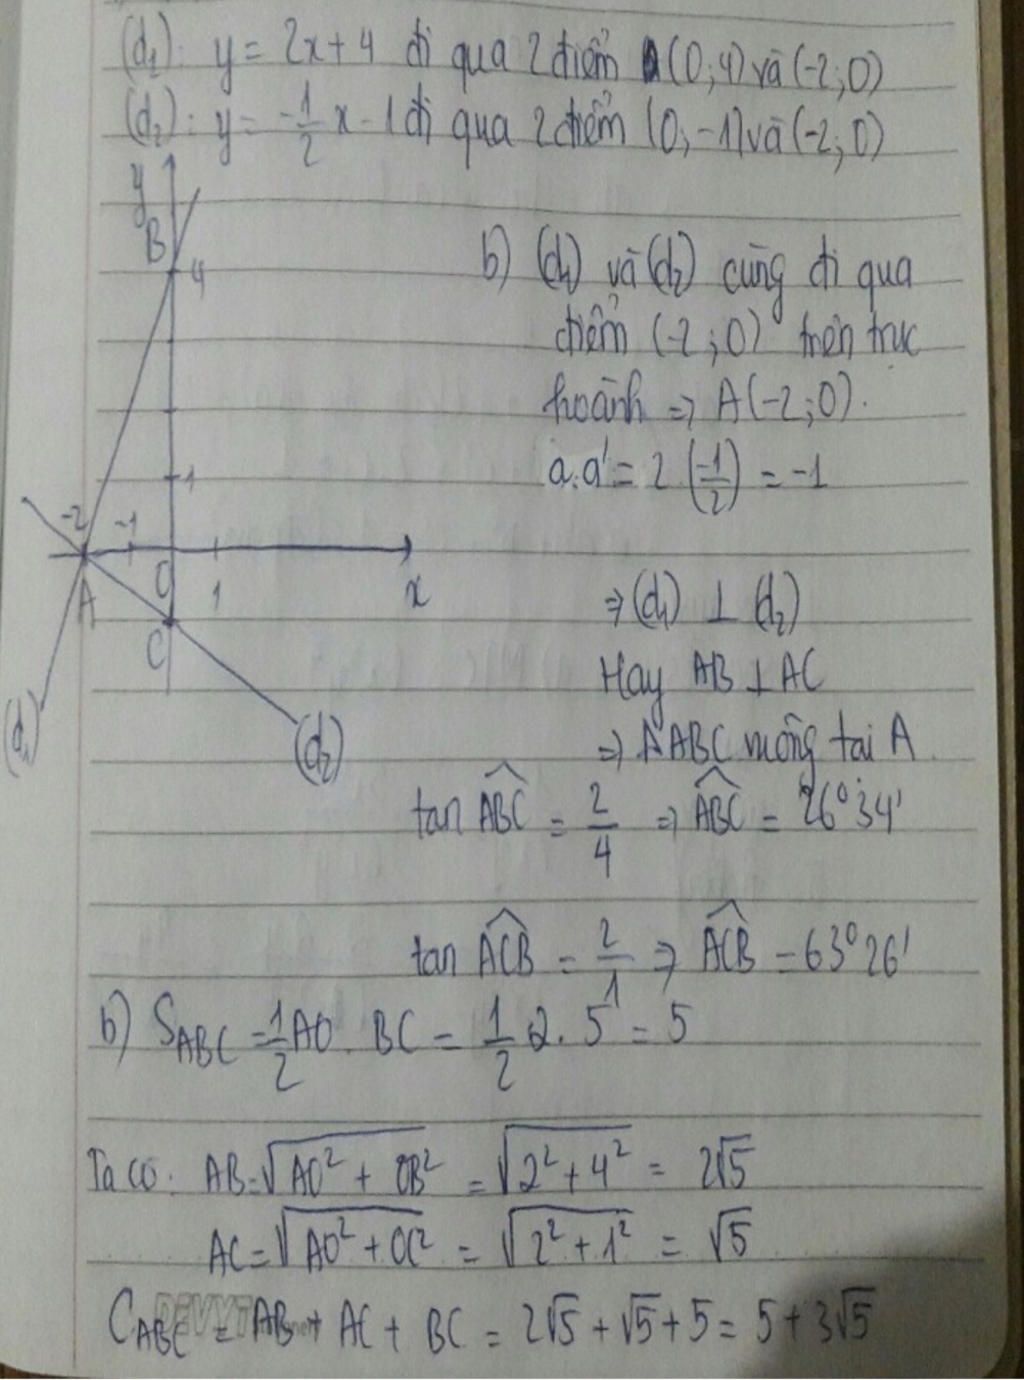 (d₁): y = 2x + 4 đi qua 2 điểm (0; 4) và (-2; 0)
(d₂): y = -1/2 x - 1 đi qua 2 điểm (0; -1) và (-2; 0)
y
B
4
1
-2 -1
A O 1 x
C
(d₁)
(d₂)
b) (d₁) và (d₂) cùng đi qua
điểm (-2; 0) trên trục
hoành => A(-2; 0).
a.a' = 2.(-1/2) = -1
=> (d₁) ⊥ (d₂)
Hay AB ⊥ AC
=> ΔABC vuông tại A
tan ABC^ = 2/4 => ABC^ = 26°34'
tan ACB^ = 2/1 => ACB^ = 63°26'
b) S_ABC = 1/2 AO . BC = 1/2 2.5 = 5
Ta có: AB = √(AO² + OB²) = √(2² + 4²) = 2√5
AC = √(AO² + OC²) = √(2² + 1²) = √5
C_ABC = AB + AC + BC = 2√5 + √5 + 5 = 5 + 3√5